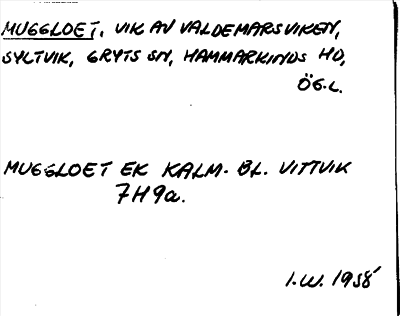 MUGGLOET, VIK AV VALDEMARSVIKEN,
SYLTVIK, GRYTS SN, HAMMARKINDS HD,
ÖG.L.
MUGGLOET EK KALM. BL. VITTVIK
7H9a.
I.W. 1958